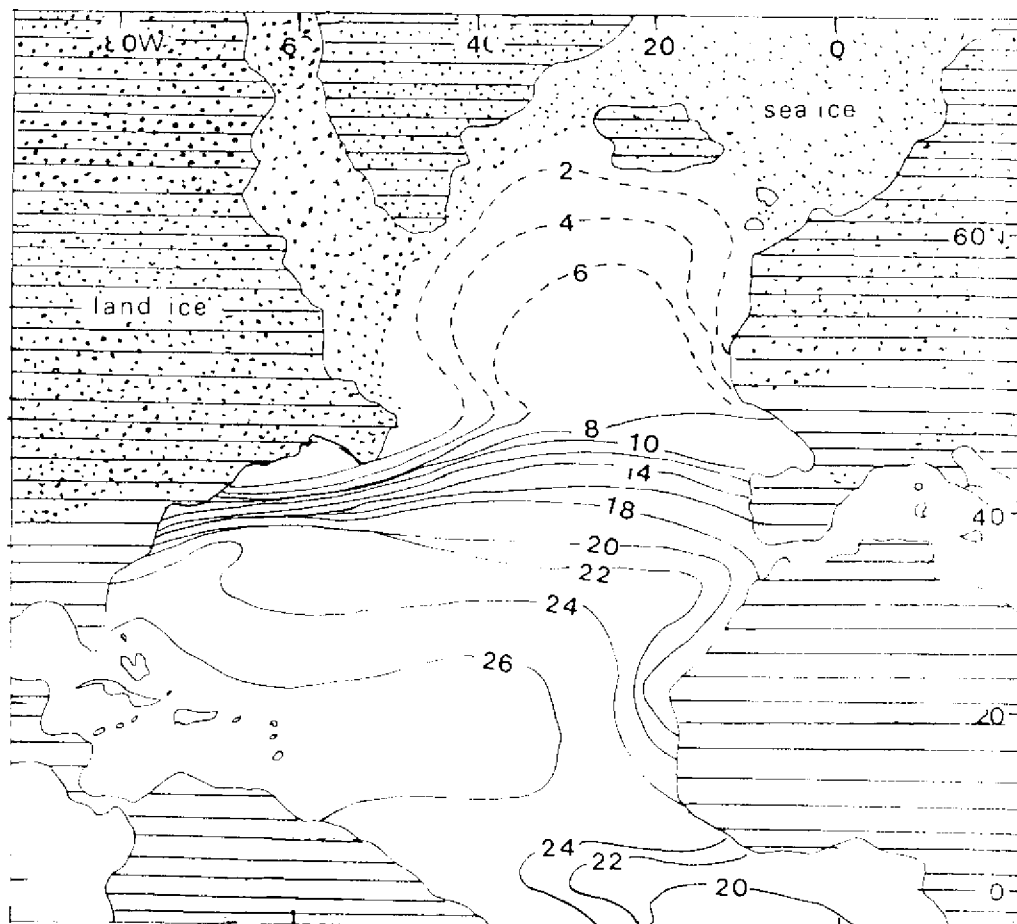 80W 60 40 20 0
sea ice
2
4
60N
6
land ice
8
10
14
18
40
20
22
24
26
20
24
22
20
0